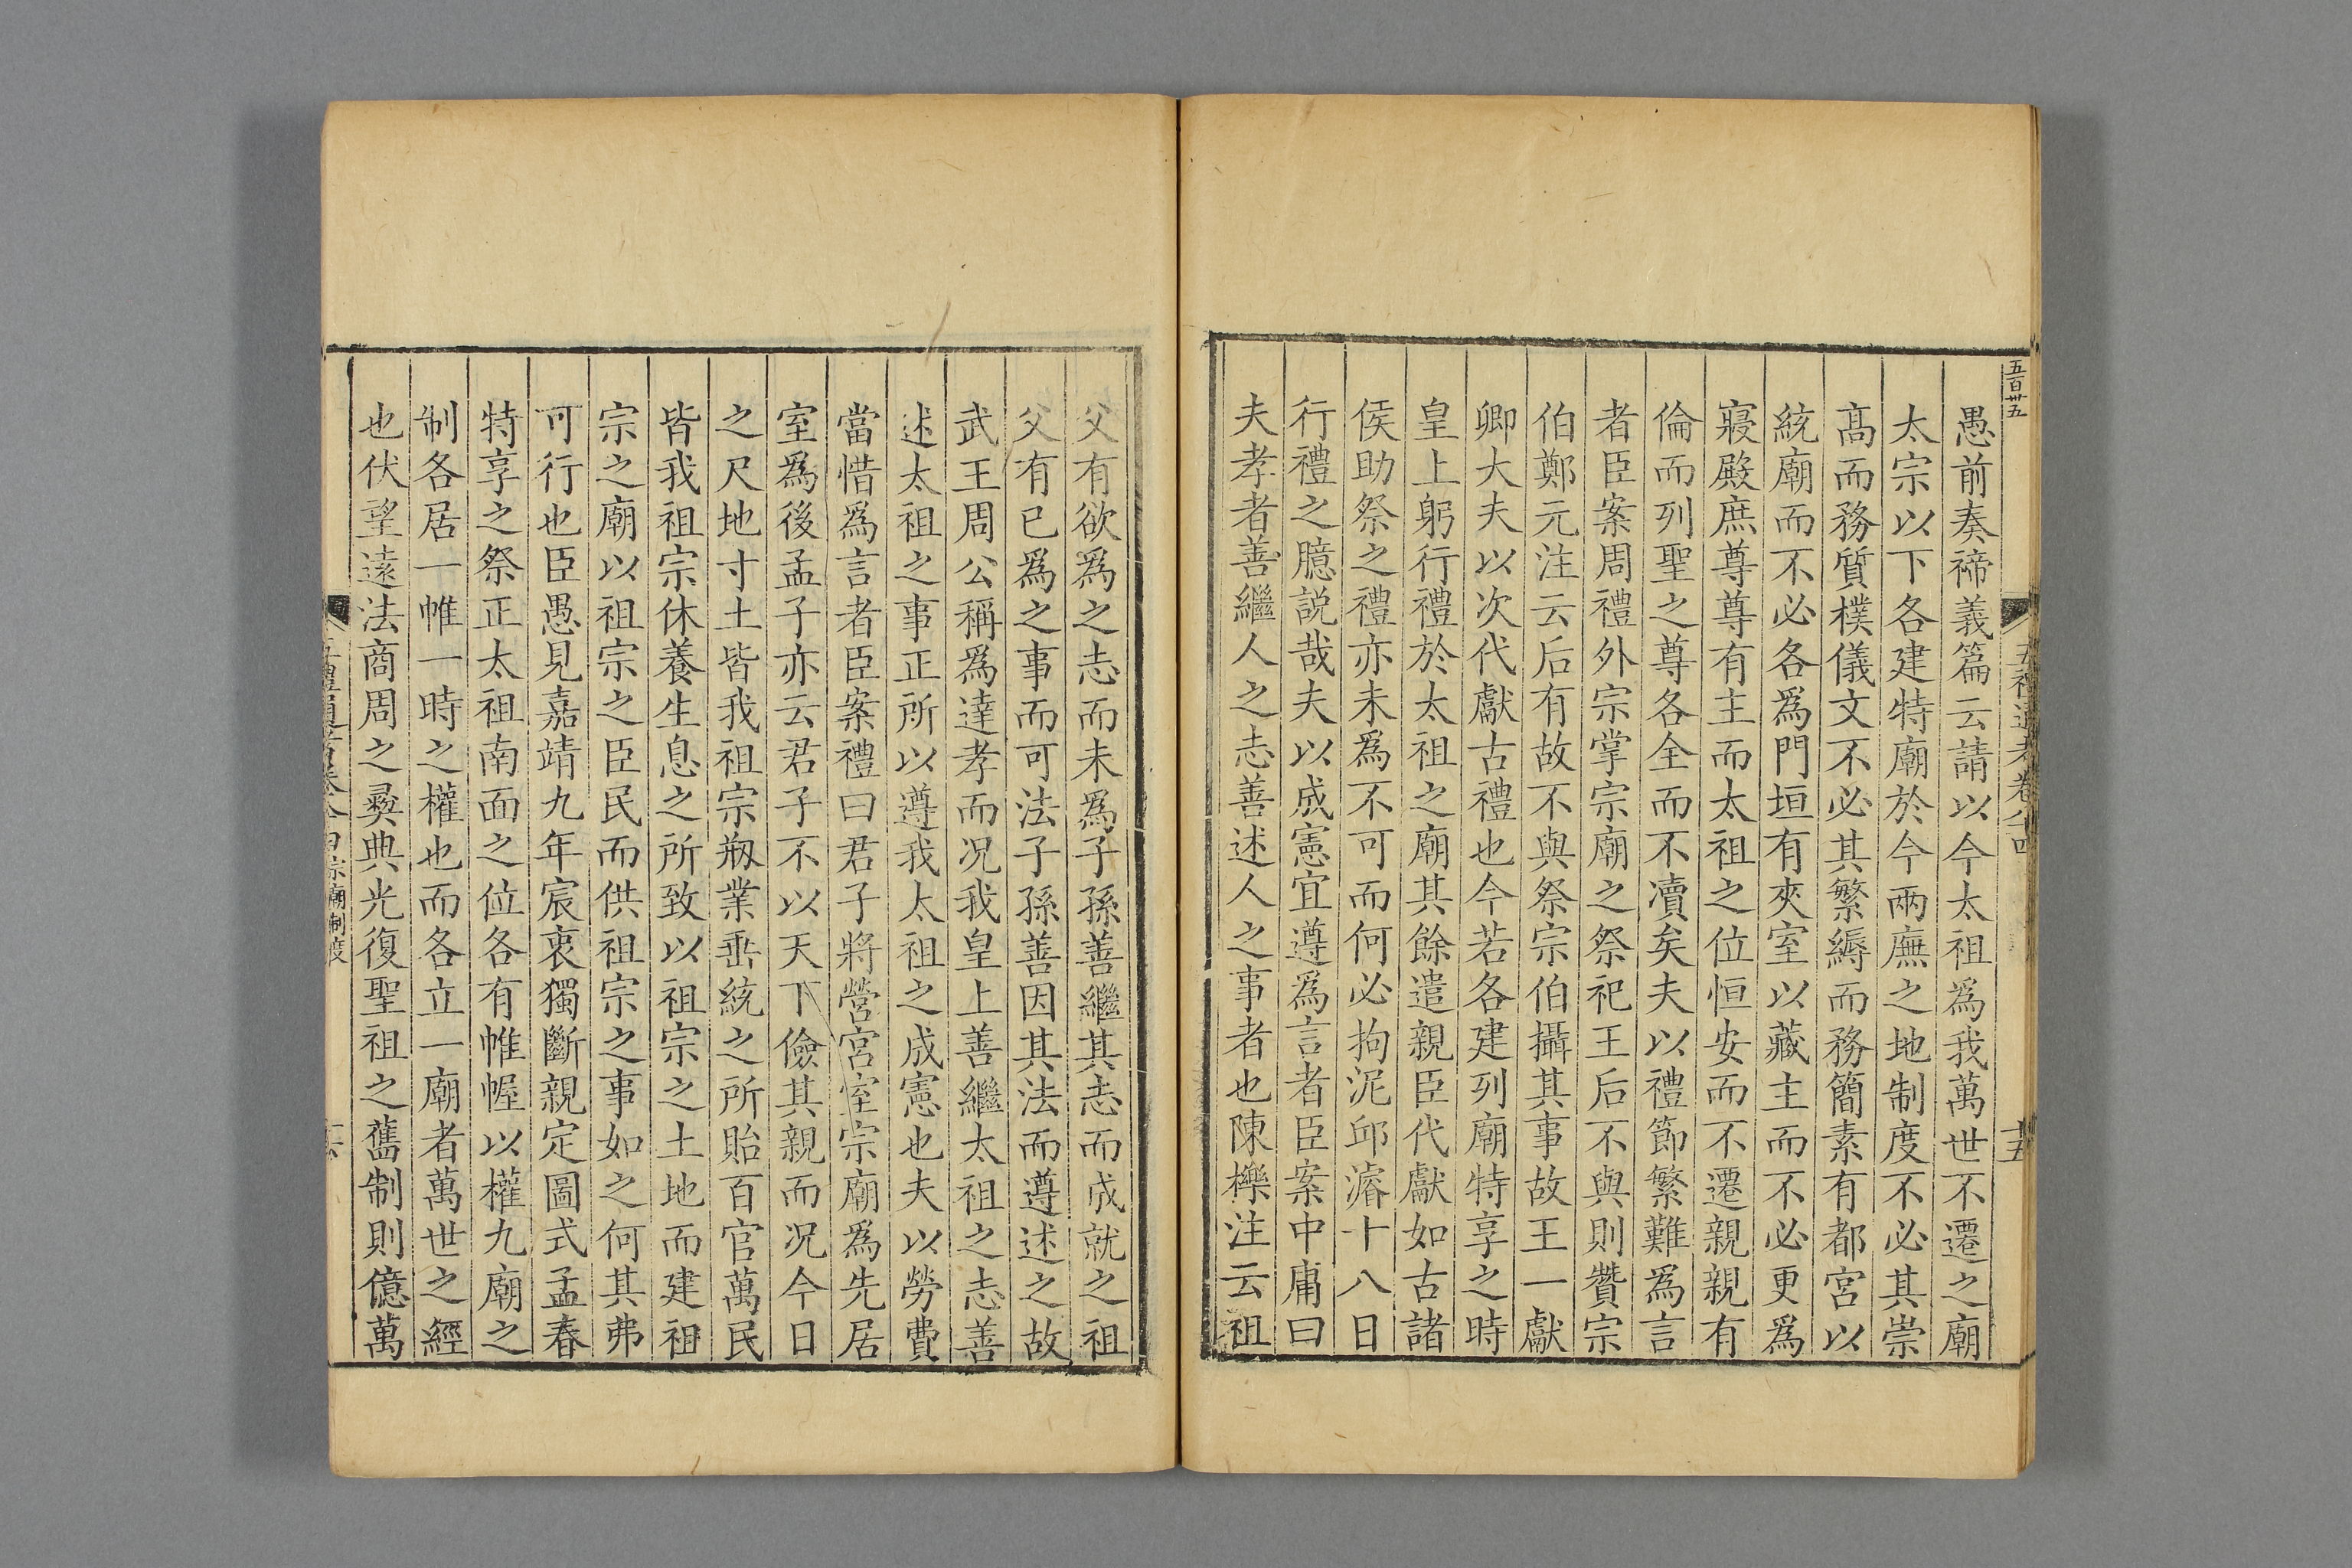 五百卅五
五禮通考卷八十四
十五
愚前奏禘義篇云請以今太祖為我萬世不遷之廟
太宗以下各建特廟於今兩廡之地制度不必其崇
髙而務質樸儀文不必其繁縟而務簡素有都宮以
統廟而不必各爲門垣有夾室以藏主而不必更爲
寢殿庶尊尊有主而太祖之位恒安而不遷親親有
倫而列聖之尊各全而不凟矣夫以禮節繁難爲言
者臣案周禮外宗掌宗廟之祭祀王后不與則贊宗
伯鄭元注云后有故不與祭宗伯攝其事故王一獻
卿大夫以次代獻古禮也今若各建列廟特享之時
皇上躬行禮於太祖之廟其餘遣親臣代獻如古諸
侯助祭之禮亦未爲不可而何必拘泥邱濬十八日
行禮之臆説哉夫以成憲宜遵爲言者臣案中庸曰
夫孝者善繼人之志善述人之事者也陳櫟注云祖
父有欲爲之志而未爲子孫善繼其志而成就之祖
父有已爲之事而可法子孫善因其法而遵述之故
武王周公稱爲達孝而况我皇上善繼太祖之志善
述太祖之事正所以遵我太祖之成憲也夫以勞費
當惜爲言者臣案禮曰君子將營宮室宗廟爲先居
室爲後孟子亦云君子不以天下儉其親而况今日
之尺地寸土皆我祖宗剏業垂統之所貽百官萬民
皆我祖宗休養生息之所致以祖宗之土地而建祖
宗之廟以祖宗之臣民而供祖宗之事如之何其弗
可行也臣愚見嘉靖九年宸衷獨斷親定圖式孟春
特享之祭正太祖南面之位各有帷幄以權九廟之
制各居一帷一時之權也而各立一廟者萬世之經
也伏望遠法商周之彜典光復聖祖之舊制則億萬
宗廟制度